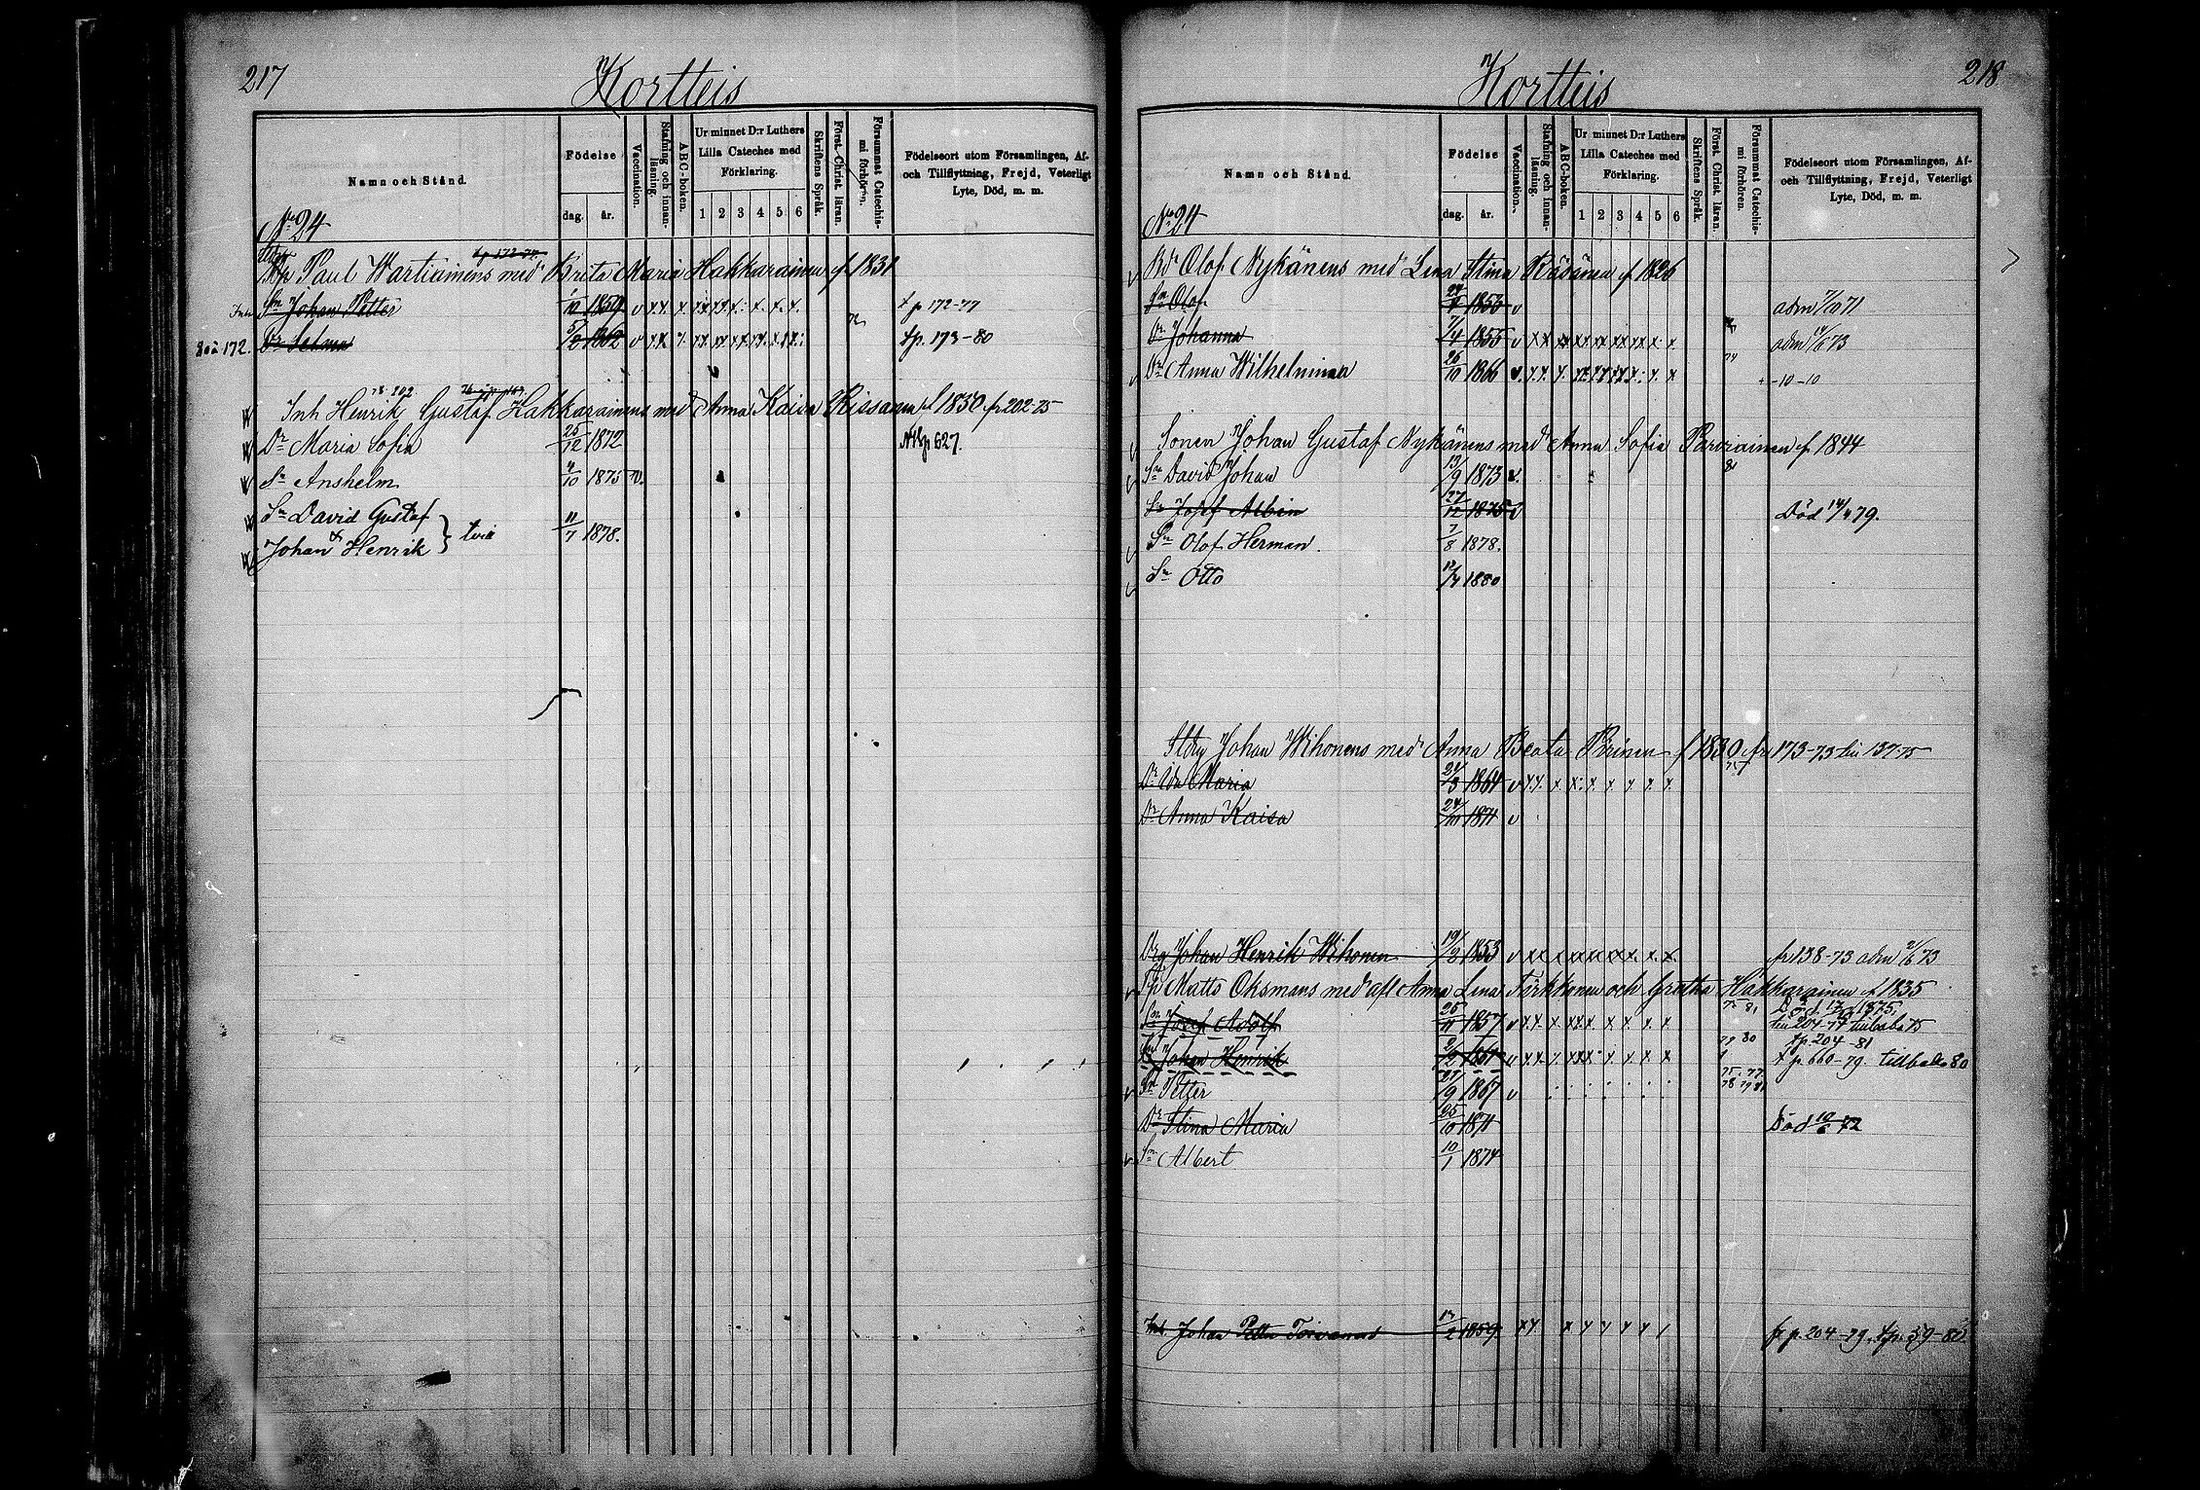 217
Kortteis
Namn och Stånd.
Födelse
dag. år.
Vaccination.
Stafning och innan-läsning.
ABC-boken.
Ur minnet D:r Luthers Lilla Cateches med Förklaring.
1 2 3 4 5 6
Skriftens Språk.
Först. Christ. läran.
Försummat Catechis-mi förhören.
Födelseort utom Församlingen, Af-
och Tillflyttning, Frejd, Veterligt
Lyte, Död, m. m.
No 24
Paul Wartiainens med Brita Maria Hakkarainen f 1831
Sn Johan Petter 1859 v t p 172-77
80 à 172. Dr Selma 5/2 1862 v tp. 173-80
78 202
Inh Henrik Gustaf Hakkarainens med Anna Kaisa Rissanen f 1850 fr 202-75
Dr Maria Sofia 25/12 1872 Ntbp 627.
Sn Anshelm 4/10 1875 v.
Sn David Gustaf
Johan Henrik } tvil 11/7 1878.
218
Kortteis
Namn och Stånd.
Födelse
dag. år.
Vaccination.
Stafning och innan-läsning.
ABC-boken.
Ur minnet D:r Luthers Lilla Cateches med Förklaring.
1 2 3 4 5 6
Skriftens Språk.
Först. Christ. läran.
Försummat Catechis-mi förhören.
Födelseort utom Församlingen, Af-
och Tillflyttning, Frejd, Veterligt
Lyte, Död, m. m.
No 24
Olof Nykänens med Lena Stina Räsänen f 1826
Sn Olof 1853 v adm 7/10 71
Dr Johanna 7/4 1855 v adm 73
Dr Anna Wilhelmina 26/10 1866 v. -10-10
Sonen Johan Gustaf Nykänens med Anna Sofia Parviainen f 1844
Sn David Johan 13/9 1873 v.
Sn Josef Albin 27/12 1875 v Död 14/4 79.
Sn Olof Herman. 7/8 1878.
Sn Otto 1880
Johan Wihonens med Anna Beata Pirinen f 1830 fr 173-73 till 137-75
Dr Ida Maria 24/3 1864 v
Dr Anna Kaisa 24/10 1871 v
Drg Johan Henrik Wihonen 19/2 1853 v fr 138-73 adm 73
Matts Oksmans med afl Anna Lena Törkkönen och Gretha Hakkarainen f 1835
Sn Josef Adolf 25/11 1857 v till 204-77 tp. 204-81
Sn Johan Henrik v t p. 660-79. tillbaka 80
Sn Petter 27/9 1867 v
Dr Stina Maria 25/10 1871 Död 10/6 72
Sn Albert 10/1 1874
Inh. Johan Petter Toivanen 17/2 1859 fr p. 204-79. tp. 59-80